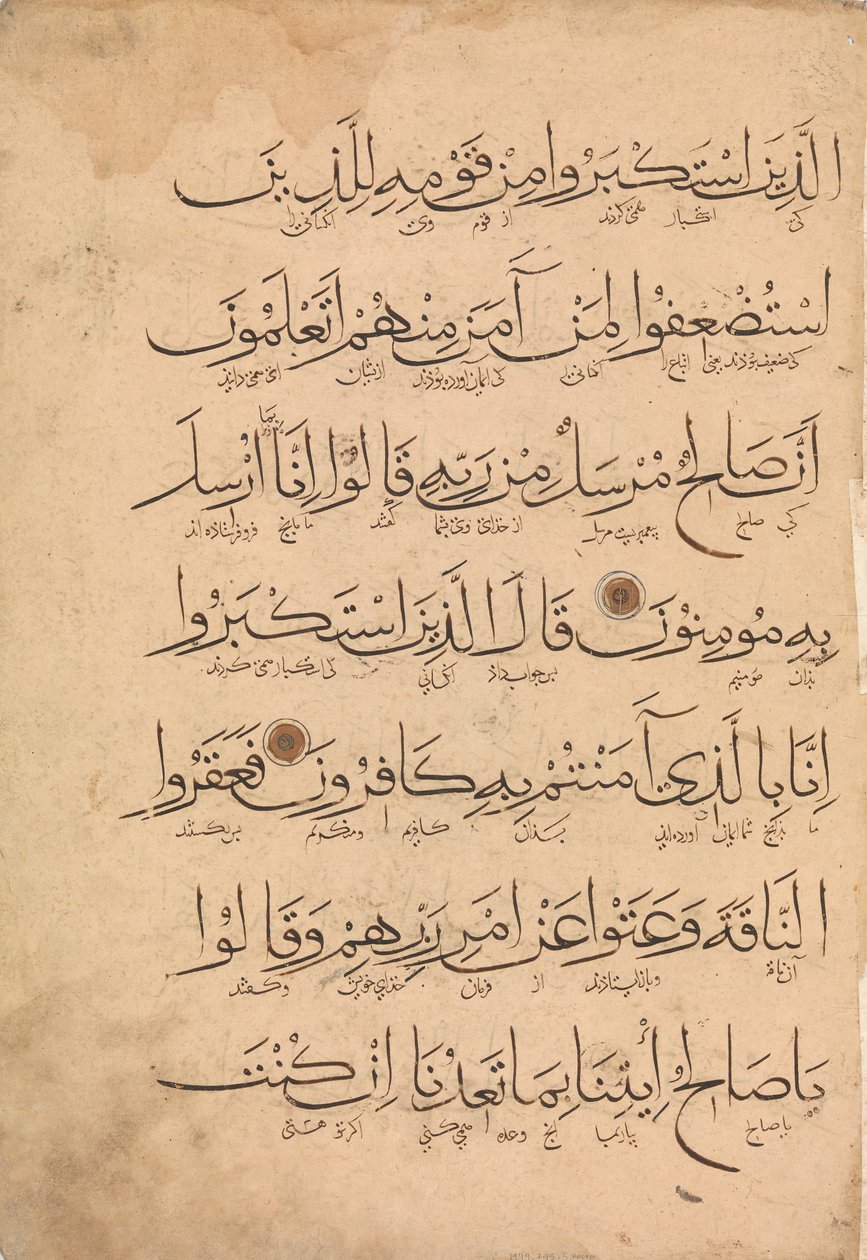 الَّذِينَ اسْتَكْبَرُوا مِنْ قَوْمِهِ لِلَّذِينَ
کی استکبار همی کردند از قوم وی آنکسانی را
اسْتُضْعِفُوا لِمَنْ آمَنَ مِنْهُمْ اَتَعْلَمُونَ
کی ضعیف بوذند یعنی اتباع را آنکسانی را کی ایمان آورده بوذند ازیشان ای همی دانید
اَنَّ صَالِحٌ مُرْسَلٌ مِنْ رَبِّهِ قَالُوا اِنَّا بما اُرْسِلَ
کی صالح پیغمبریست مرسل از خدای وی بشما گفتند ما بدانچ فروفرستاذه اند
بِهِ مُومِنُونَ قَالَ الَّذِينَ اسْتَكْبَرُوا
بذان مومنیم پس جواب داذ آنکسانی کی استکبار همی کردند
اِنَّا بِالَّذِي آمَنْتُمْ بِهِ كَافِرُونَ فَعَقَرُوا
ما بذانچ شما ایمان آورده اید بذان کافریم و منکریم پس بکشتند
النَّاقَةَ وَعَتَوْا عَنْ اَمْرِ رَبِّهِمْ وَقَالُوا
آن ناقه و باز ایستاذند از فرمان خدای خویش و گفتند
يَا صَالِحُ اُئْتِنَا بِمَا تَعِدُنَا اِنْ كُنْتَ
یا صالح بیار بما آنچ وعده همی کنی اگر تو هستی